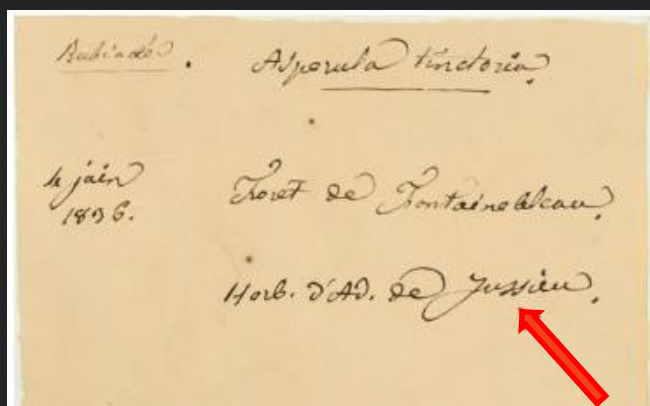 Rubiacées. Asperula tinctoria.
4 juin Foret de Fontainebleau.
1836.
Herb. d'Ad. de Jussieu.